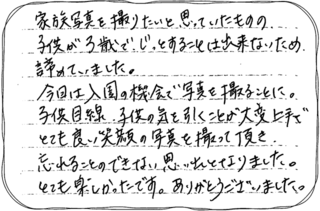 家族写真を撮りたいと思っていたものの
子供が3歳で じっとすることは出来ないため
諦めていました。
今回は入園の機会で写真を撮ることに。
子供目線、子供の気を引くことが大変上手で
とても良い笑顔の写真を撮って頂き
忘れることのできない思い出となりました。
とても楽しかったです。ありがとうございました。